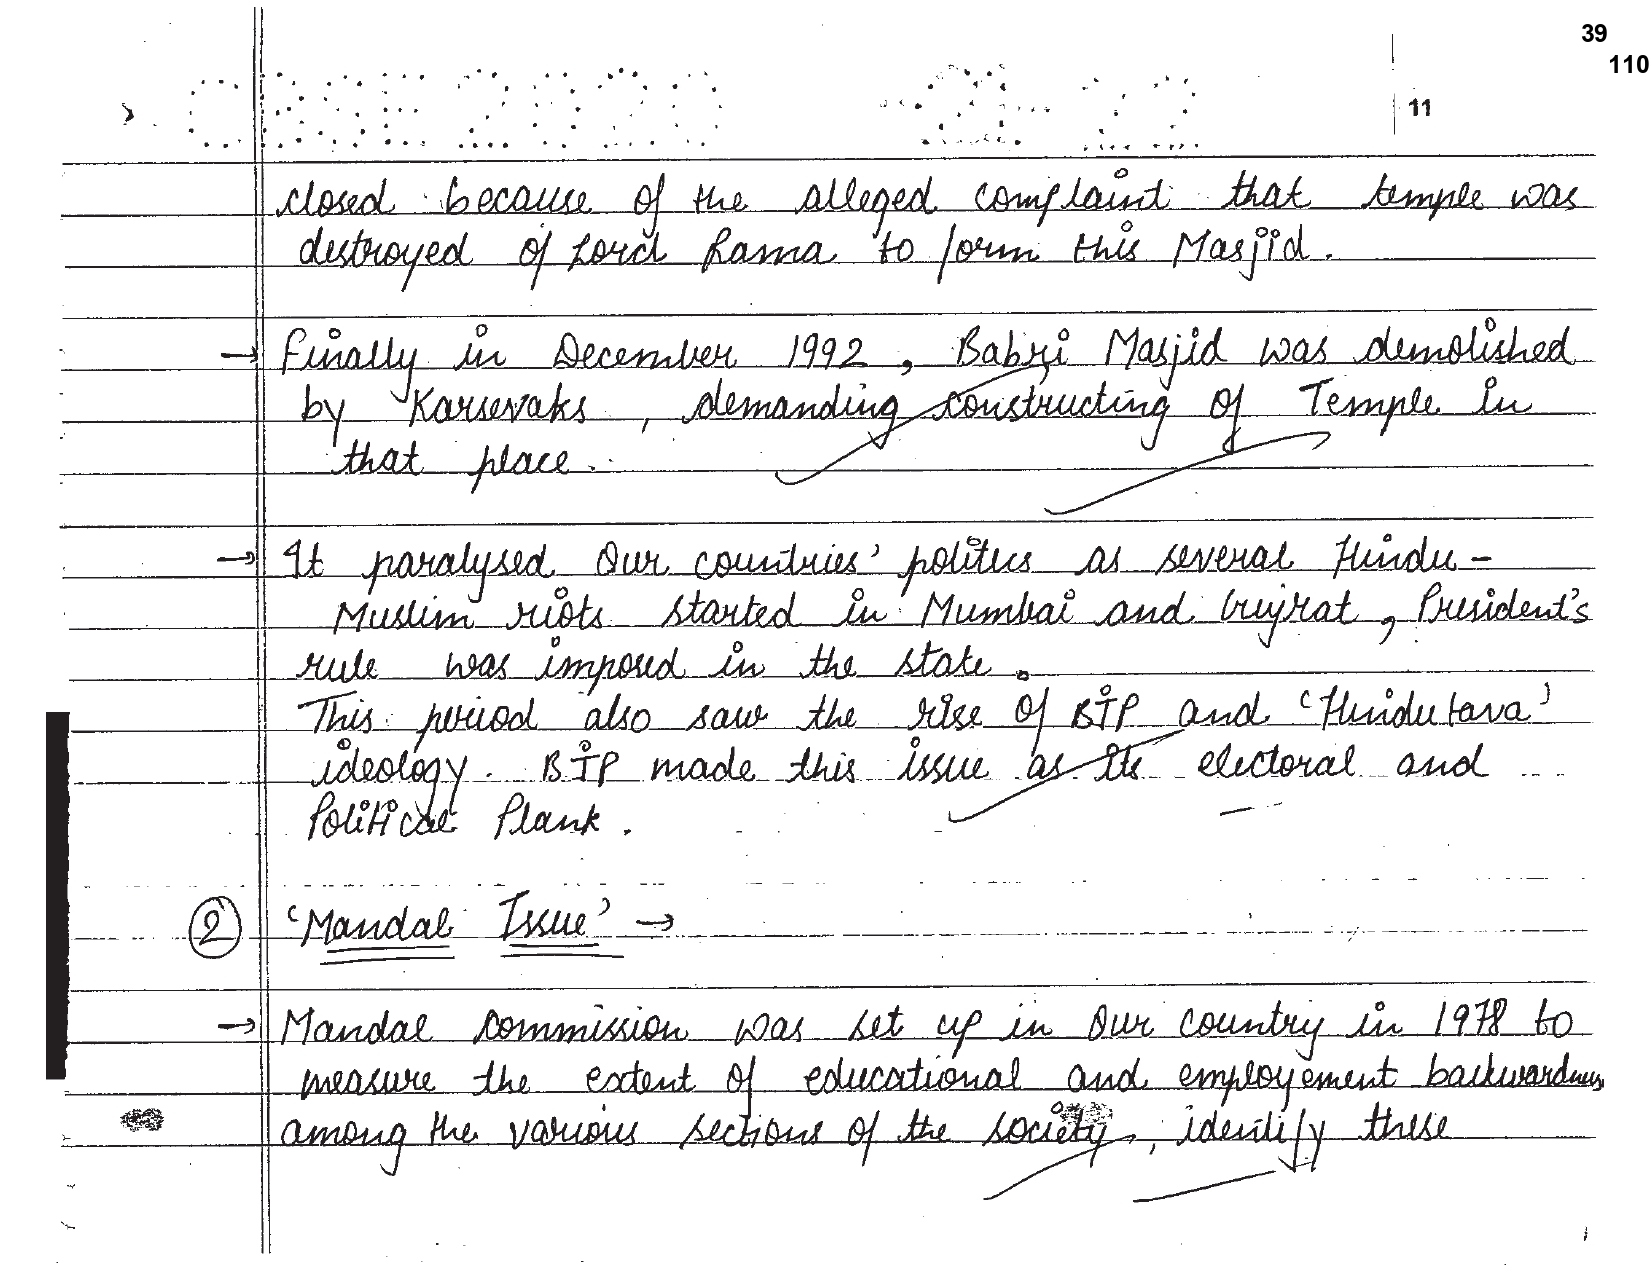 39
110
CBSE 2020
11
closed because of the alleged complaint that temple was
destroyed of Lord Rama to form this Masjid.
→ Finally in December 1992, Babri Masjid was demolished
by Karsevaks, demanding constructing of Temple in
that place.
→ It paralysed our countries' politics as several Hindu-
Muslim riots started in Mumbai and Gujrat, President's
rule was imposed in the state.
This period also saw the rise of BJP and 'Hindutava'
ideology. BJP made this issue as its electoral and
Political Plank.
2 'Mandal Issue' →
→ Mandal commission was set up in our country in 1978 to
measure the extent of educational and employement backwardness
among the various sections of the society, identify these